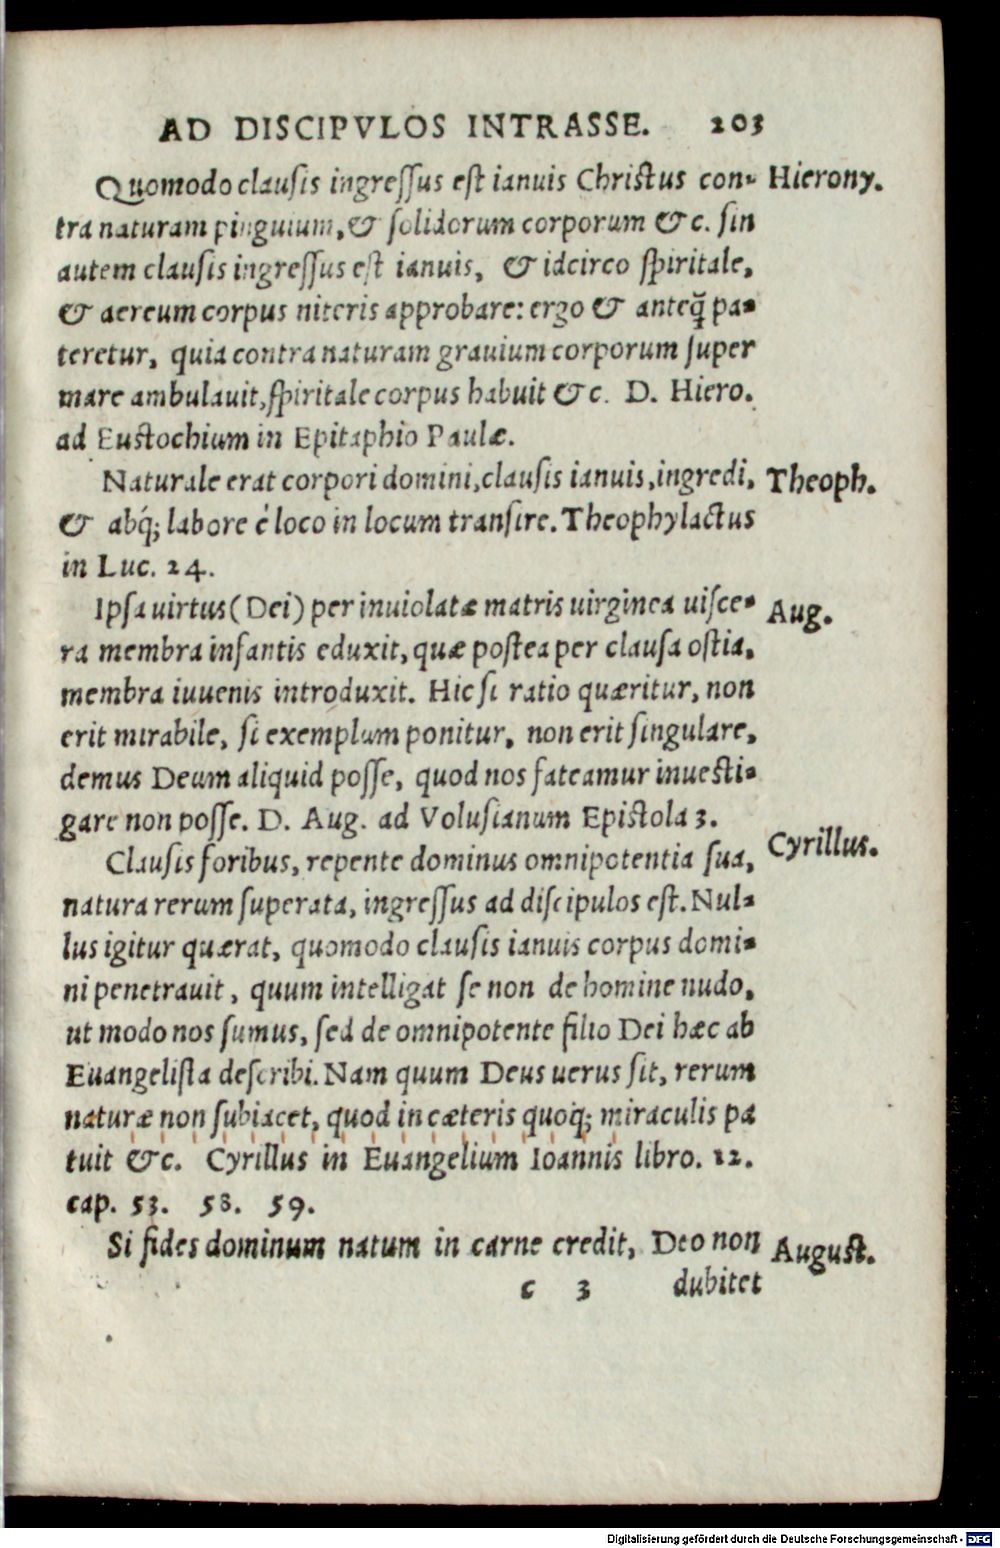 AD DISCIPVLOS INTRASSE. 203
Quomodo clausis ingressus est ianuis Christus con- Hierony.
tra naturam pinguium, & solidorum corporum &c. sin
autem clausis ingressus est ianuis, & idcirco spiritale,
& aereum corpus niteris approbare: ergo & anteq̃ pa-
teretur, quia contra naturam grauium corporum super
mare ambulauit, spiritale corpus habuit &c. D. Hiero.
ad Eustochium in Epitaphio Paulæ.
Naturale erat corpori domini, clausis ianuis, ingredi, Theoph.
& absq́; labore è loco in locum transire. Theophylactus
in Luc. 24.
Ipsa uirtus (Dei) per inuiolatæ matris uirginea uisce- Aug.
ra membra infantis eduxit, quæ postea per clausa ostia,
membra iuuenis introduxit. Hic si ratio quæritur, non
erit mirabile, si exemplum ponitur, non erit singulare,
demus Deum aliquid posse, quod nos fateamur inuesti-
gare non posse. D. Aug. ad Volusianum Epistola 3.
Clausis foribus, repente dominus omnipotentia sua, Cyrillus.
natura rerum superata, ingressus ad discipulos est. Nul-
lus igitur quærat, quomodo clausis ianuis corpus domi-
ni penetrauit, quum intelligat se non de homine nudo,
ut modo nos sumus, sed de omnipotente filio Dei hæc ab
Euangelista describi. Nam quum Deus uerus sit, rerum
naturæ non subiacet, quod in cæteris quoq; miraculis pa
tuit &c. Cyrillus in Euangelium Ioannis libro. 12.
cap. 53. 58. 59.
Si fides dominum natum in carne credit, Deo non August.
c 3 dubitet
Digitalisierung gefördert durch die Deutsche Forschungsgemeinschaft - DFG